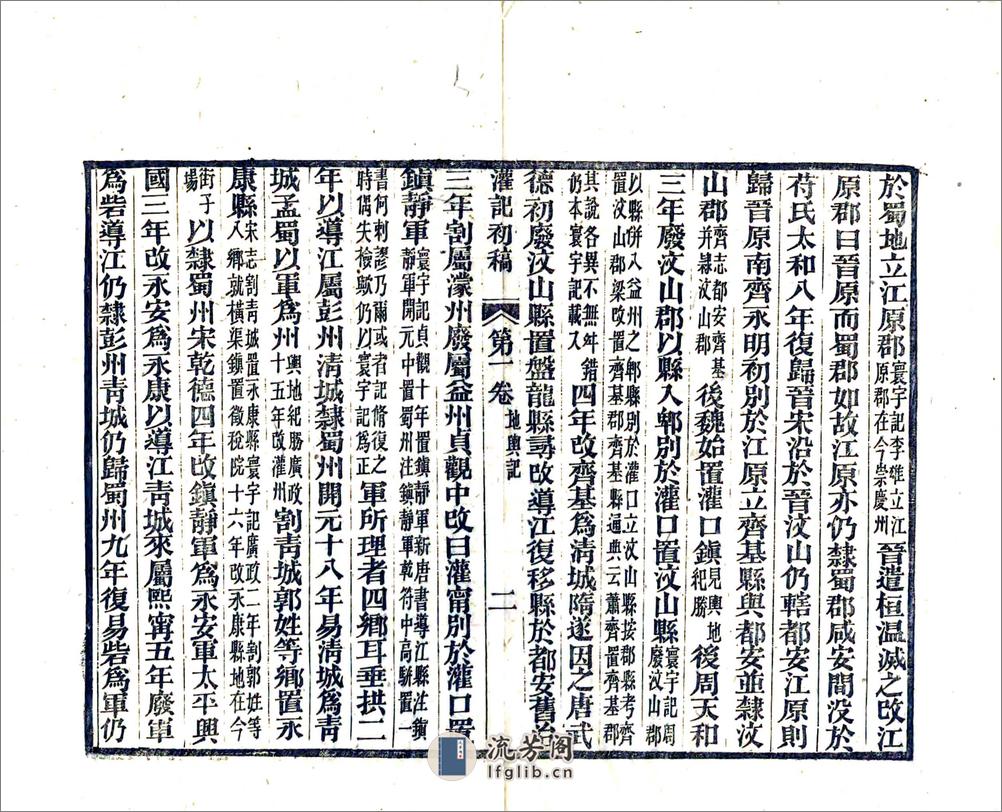 於蜀地立江原郡寰宇記李雄立江原郡在今崇慶州晉遣桓温滅之改江
原郡曰晉原而蜀郡如故江原亦仍隸蜀郡咸安間没於
苻氏太和八年復歸晉宋沿於晉汶山仍轄都安江原則
歸晉原南齊永明初別於江原立齊基縣與都安並隸汶
山郡齊志都安齊基并隸汶山郡後魏始置灌口鎮見輿地紀勝後周天和
三年廢汶山郡以縣入郫別於灌口置汶山縣寰宇記周廢汶山郡
以縣併入益州之郫縣別於灌口立汶山縣按郡縣考齊置汶山郡梁改置齊基郡齊基縣通典云蕭齊置齊基郡
其說各異不無舛錯仍本寰宇記載入四年改齊基爲清城隋遂因之唐武
德初廢汶山縣置盤龍縣尋改導江復移縣於都安舊治
灌記初稿 第一卷 地輿記 二
三年割屬濛州廢屬益州貞觀中改曰灌甯別於灌口置
鎮靜軍寰宇記貞觀十年置鎮靜軍新唐書導江縣注鎮靜軍開元中置蜀州注鎮靜軍乾符中高駢置一
書何刺謬乃爾或者記脩復之時偶失檢歟仍以寰宇記爲正軍所理者四鄉耳垂拱二
年以導江屬彭州清城隸蜀州開元十八年易清城爲青
城孟蜀以軍爲州輿地紀勝廣政十五年改灌州割青城郭姓等鄉置永
康縣宋志割青城置永康縣寰宇記廣政二年割郭姓等八鄉就橫渠鎮置徵稅院十六年改永康縣地在今
街子場以隸蜀州宋乾德四年改鎮靜軍爲永安軍太平興
國三年改永安爲永康以導江青城來屬熙甯五年廢軍
爲砦導江仍隸彭州青城仍歸蜀州九年復易砦爲軍仍
流芳阁
lfglib.cn